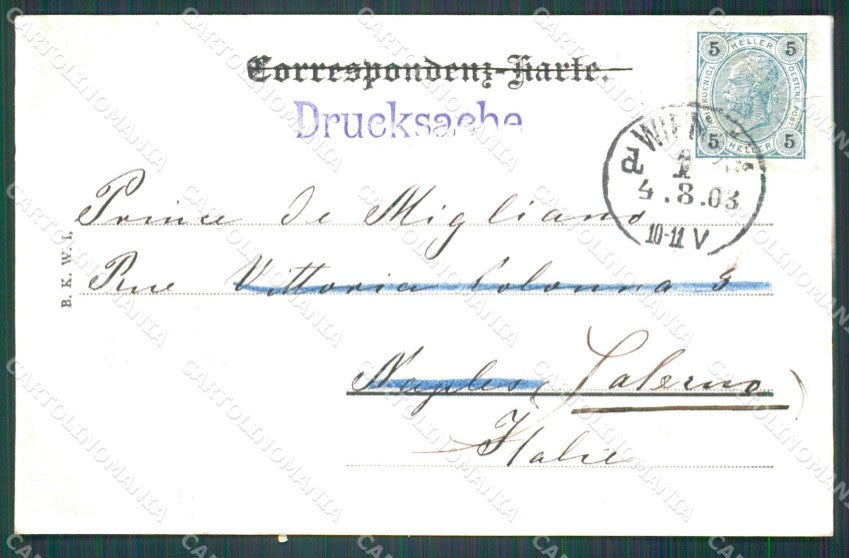 Correspondenz-Karte.
Drucksache
5 HELLER 5
5 HELLER 5
WIEN
1
4.8.03
10-11 V
B. K. W. I.
Prince de Migliano
Rue Vittoria Colonna 3
Naples (Salerno)
Italie
CARTOLINOMANIA